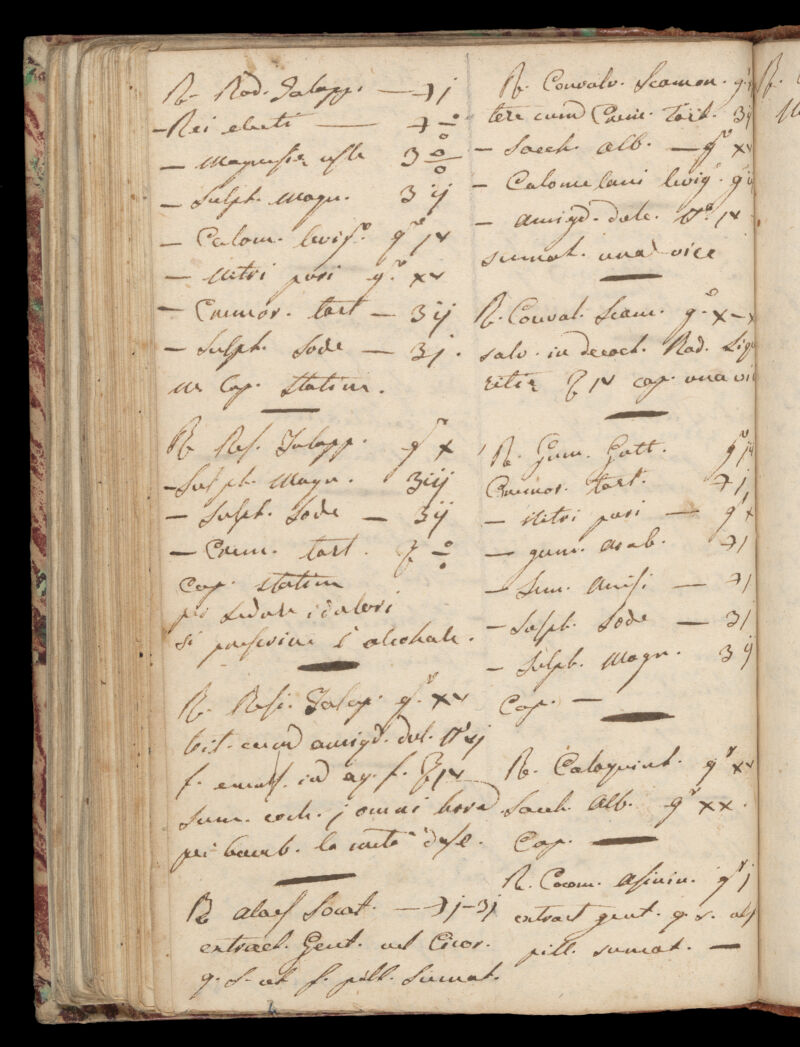 R. Rad. Jalapp. — ℈j
– Rei electi — ℈ ÷
— Magnesiæ uste ʒ ÷
— Sulph. Magn. ʒ ij
— Calom. levig.º g.º iv
— Nitri puri g.º xv
— Cremor. tart — ʒ ij
— Sulph. Sode — ʒj.
m Cap. Statim.
R Res. Jalapp. gº x
– Sulph. Magn. ʒiij
— Sulph. Sode — ʒij
— Crem. tart. ℥ ÷
Cap. statim
per sedare i dolori
si prescrive l'alcohole.
R. Resi. Jalap. g.º xv
trit. cum amigd. dul. nº vj
f. emuls. in aq. f. ℥ iv
sum. coch. j omni hora
pei bamb. la metà dose.
R aloes Socot. — ℈j–ʒj
extract. Gent. vel Cicor.
q. s. ut f. pill. Sumat.
R. Convolv. Scamon. gº
tere cum Crem. Tart. ʒij
— Sacch. alb. — gº xv
— Calomelani levigº gº
— amigd. dulc. nº iv
sumat. una vice
R. Convol. Scam. g.º x–x
solv. in decoct. Rad. Liqu
ritiæ ℥ iv cap. una vi
R. Gum. Gott. gº
Cremor. tart. ℈j
— Nitri puri — gº x
— gum. arab. ℈j
— Sem. Anisi — ℈j
— Sulph. Sode — ʒj
— Sulph. Magn. ʒ ij
Cap. —
R. Coloquint. gº xv
Sacch. Alb. gº xx.
Cap.
R. Cocom. Asinin. gº j
extract gent. q. s. ut f
pill. sumat. —